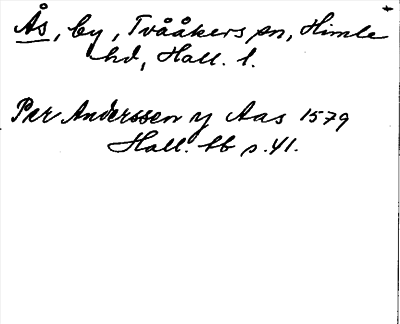 Ås, by, Tvååkers sn, Himle
hd, Hall. l.
Per Anderssen y Aas 1579
Hall. tb s. 41.